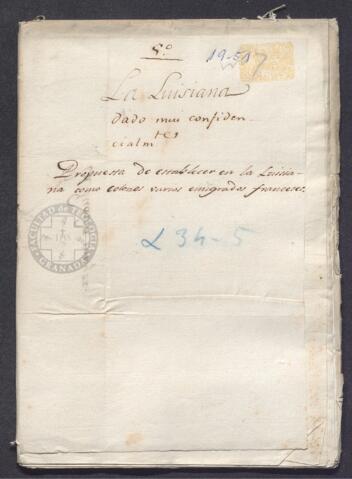 5.º
19-517
La Luisiana
dado muy confiden-
cialm.tes
Propuesta de establecer en la Luisia-
na como colonos varios emigrados franceses.
L 34-5
FACULTAD DE TEOLOGIA
GRANADA